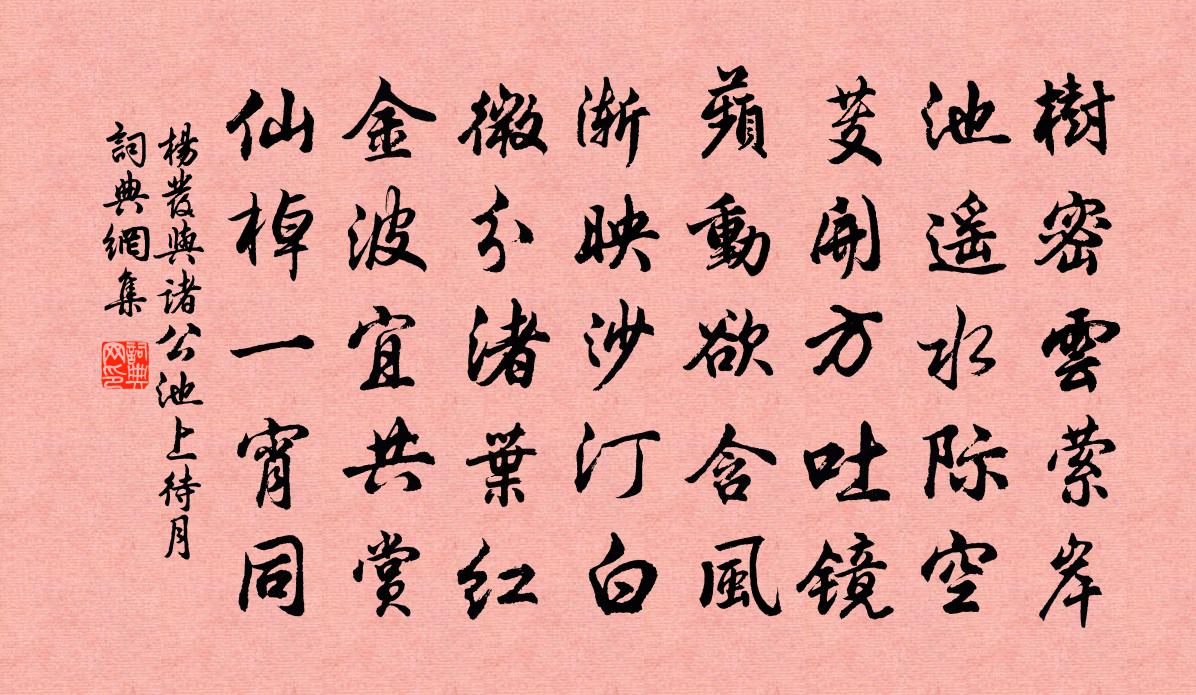 樹密雲萦岸
池遥水际空
芰開方吐镜
蘋動欲含風
渐映沙汀白
微分渚葉红
金波宜共赏
仙棹一宵同
楊發與諸公池上待月
詞典網集
詞典
网印